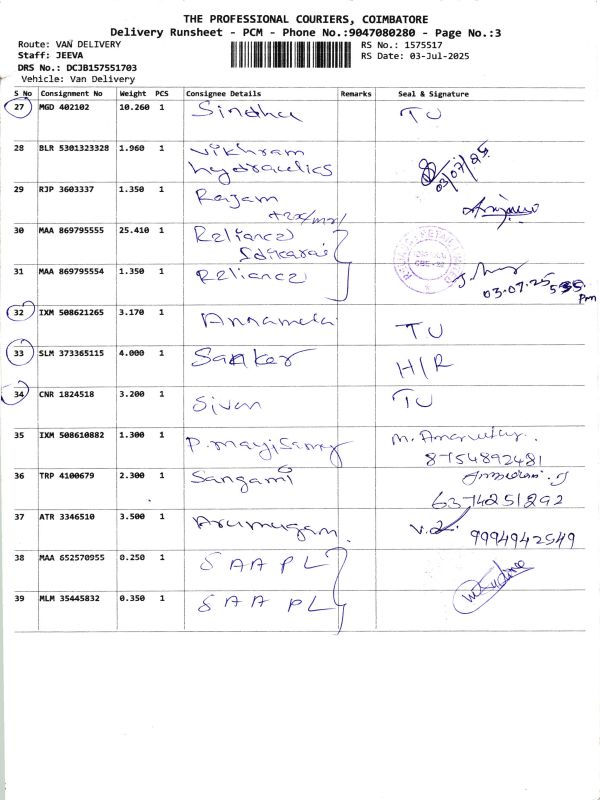 THE PROFESSIONAL COURIERS, COIMBATORE
Delivery Runsheet - PCM - Phone No.:9047080280 - Page No.:3
Route: VAN DELIVERY
RS No.: 1575517
Staff: JEEVA
RS Date: 03-Jul-2025
DRS No.: DCJB157551703
Vehicle: Van Delivery
S No Consignment No Weight PCS Consignee Details Remarks Seal & Signature
27 MGD 402102 10.260 1 Sindhu TU
28 BLR 5301323328 1.960 1 Vikhram
hydraulics 03/07/25
29 RJP 3603337 1.350 1 Rajam
30 MAA 869795555 25.410 1 Reliance
31 MAA 869795554 1.350 1 Reliance
03.07.25
pm
32 IXM 508621265 3.170 1 TU
33 SLM 373365115 4.000 1 Sanker H/R
34 CNR 1824518 3.200 1 Sivan TU
35 IXM 508610882 1.300 1 P. Mayilsamy
8754892481
36 TRP 4100679 2.300 1 Sangami
6374251292
37 ATR 3346510 3.500 1 Arumugam. 9994942549
38 MAA 652570955 0.250 1 SAAPL
39 MLM 35445832 0.350 1 SAAPL